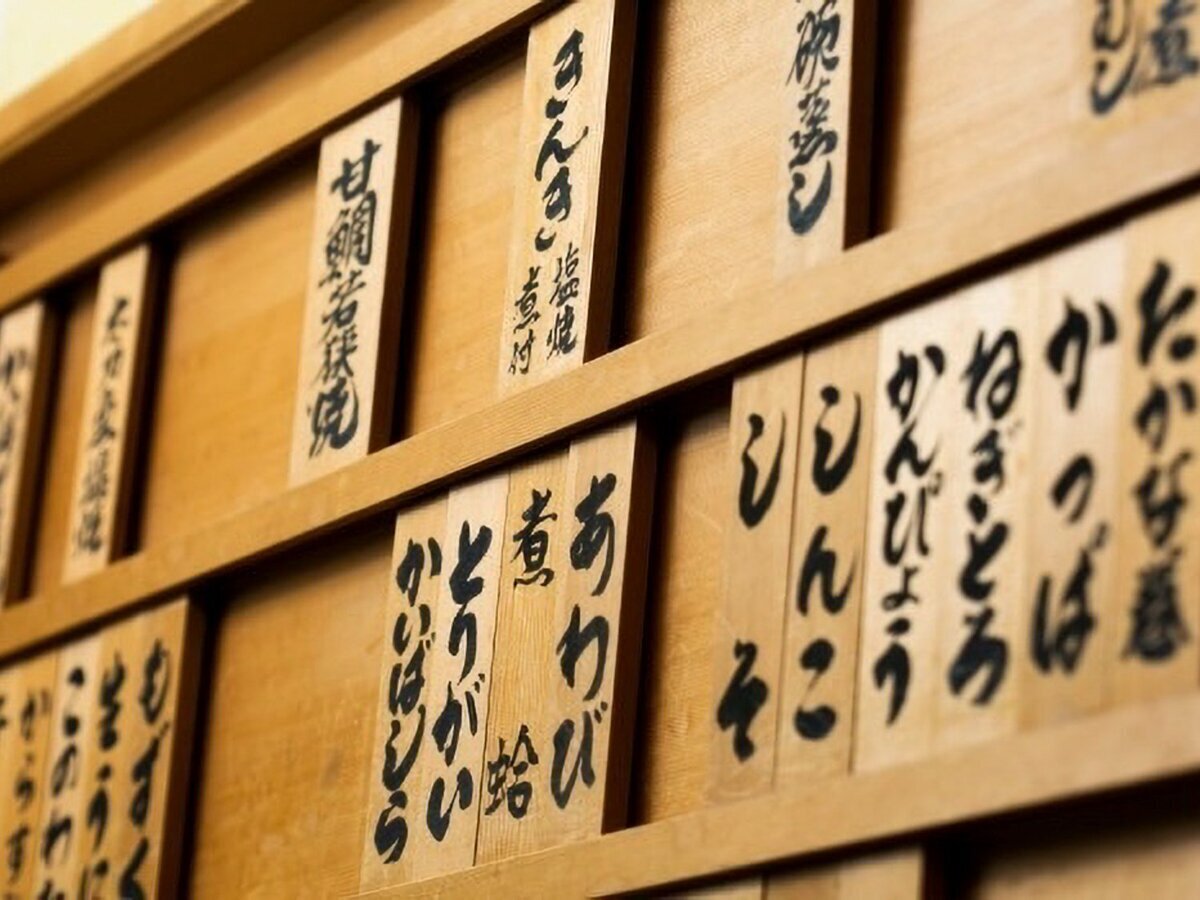 碗蒸し
きんき 塩焼
煮付
甘鯛若狭焼
たかな巻
かっぱ
ねぎとろ
かんぴょう
しんこ
しそ
あわび
煮蛤
とりがい
かいばしら
もずく
生うに
このわた
からす